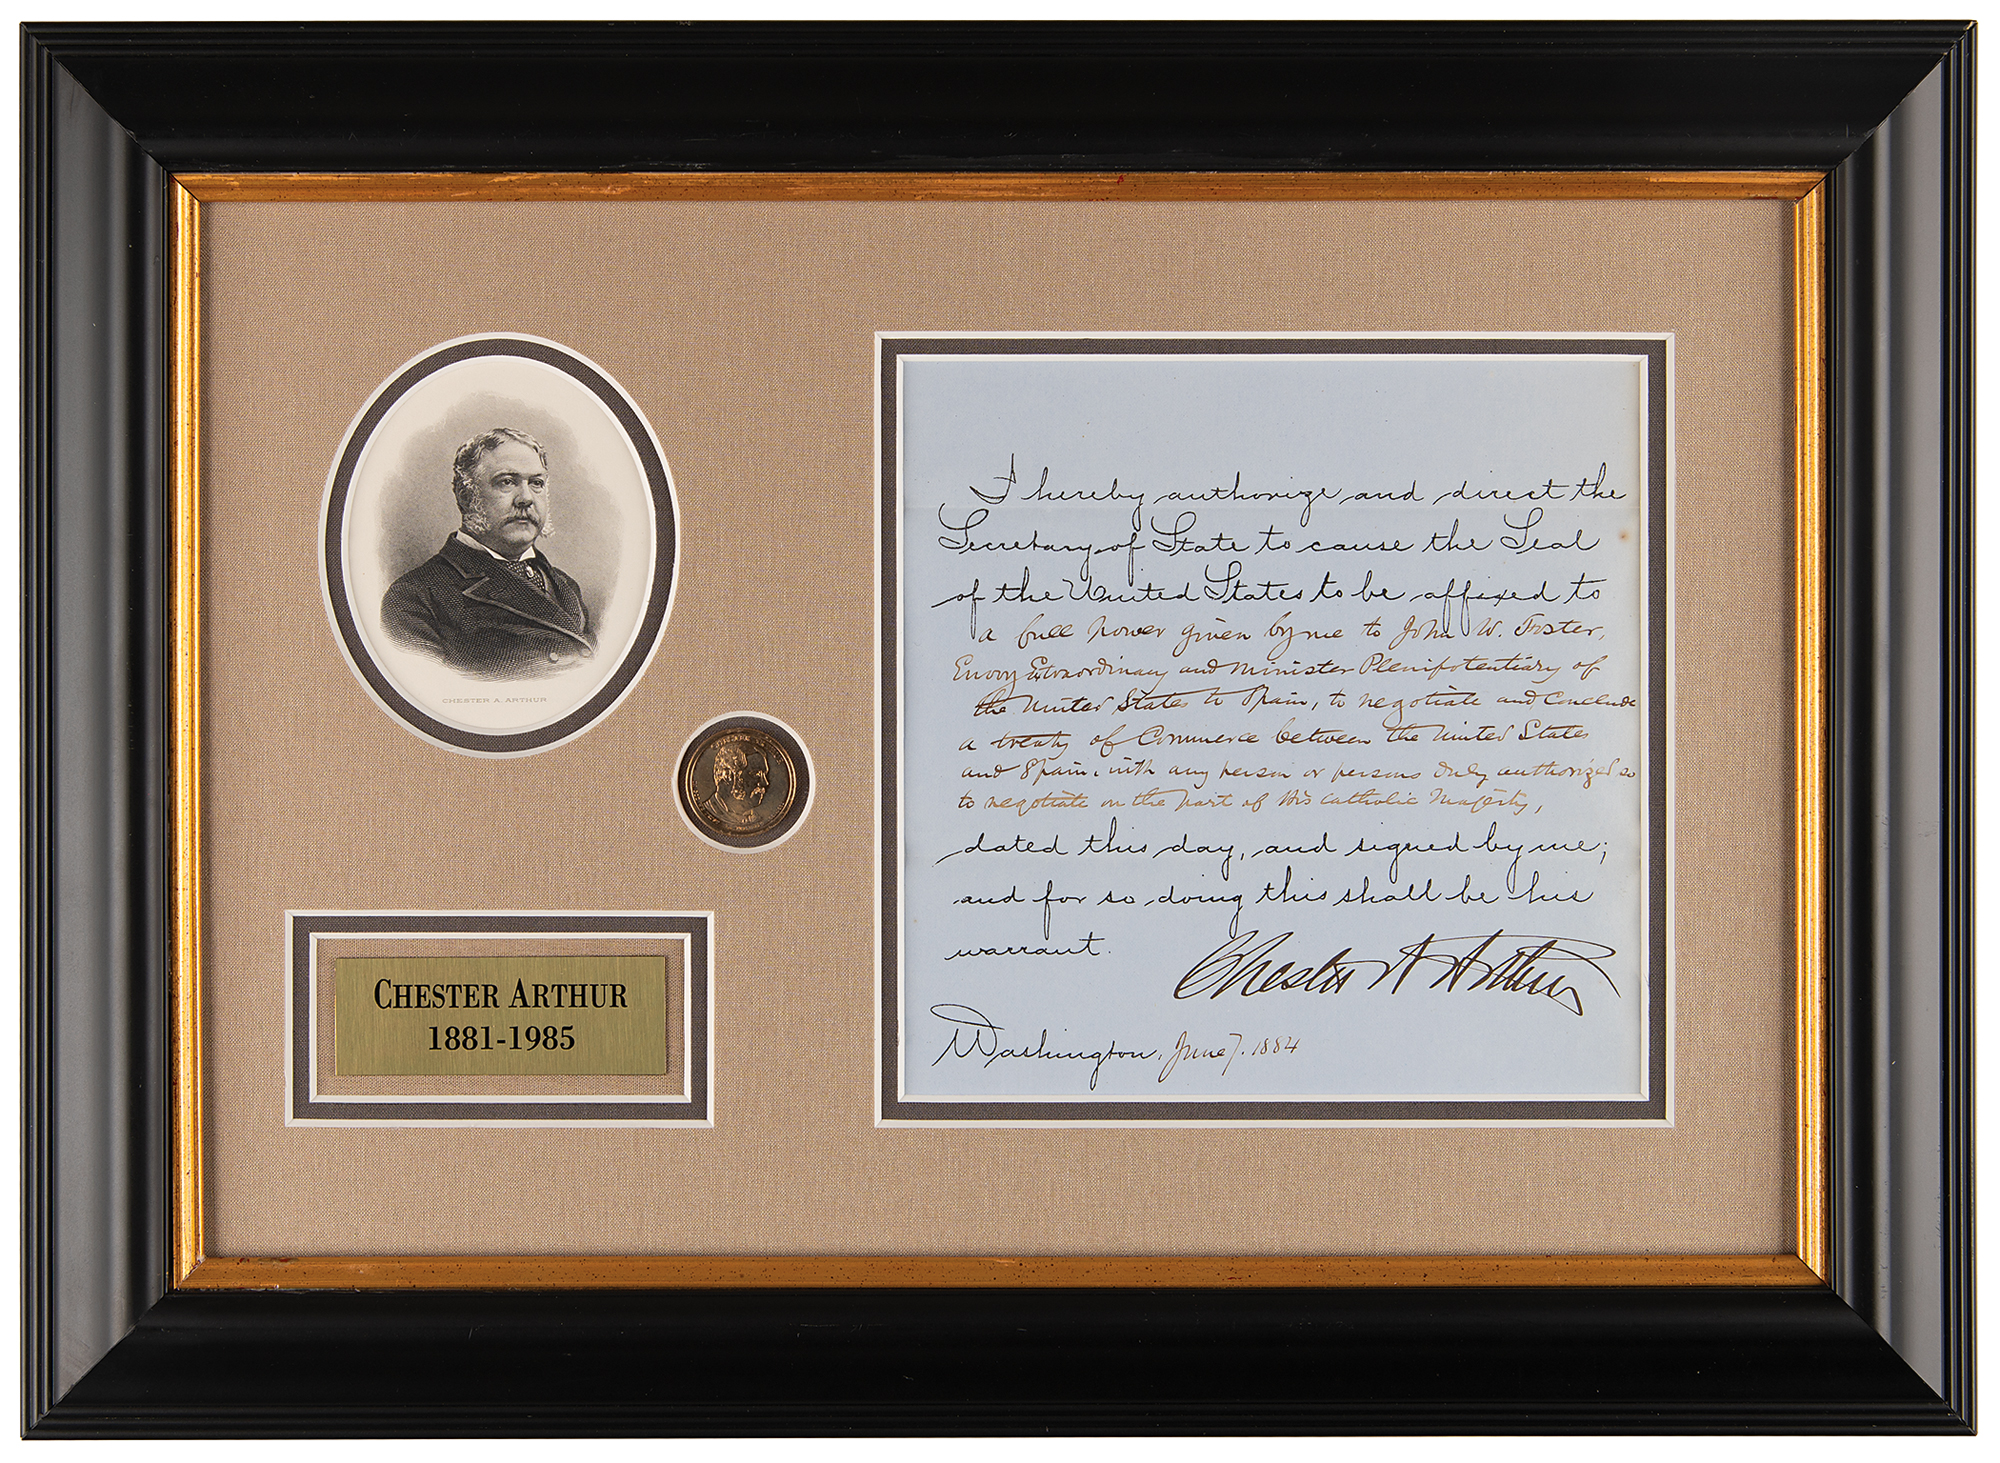 CHESTER A. ARTHUR
CHESTER ARTHUR
1881-1985
I hereby authorize and direct the
Secretary of State to cause the Seal
of the United States to be affixed to
a full power given by me to John W. Foster,
Envoy Extraordinary and Minister Plenipotentiary of
the United States to Spain, to negotiate and conclude
a treaty of Commerce between the United States
and Spain, with any person or persons duly authorized so
to negotiate on the part of His Catholic Majesty,
dated this day, and signed by me;
and for so doing this shall be his
warrant.
Chester A Arthur
Washington, June 7. 1884